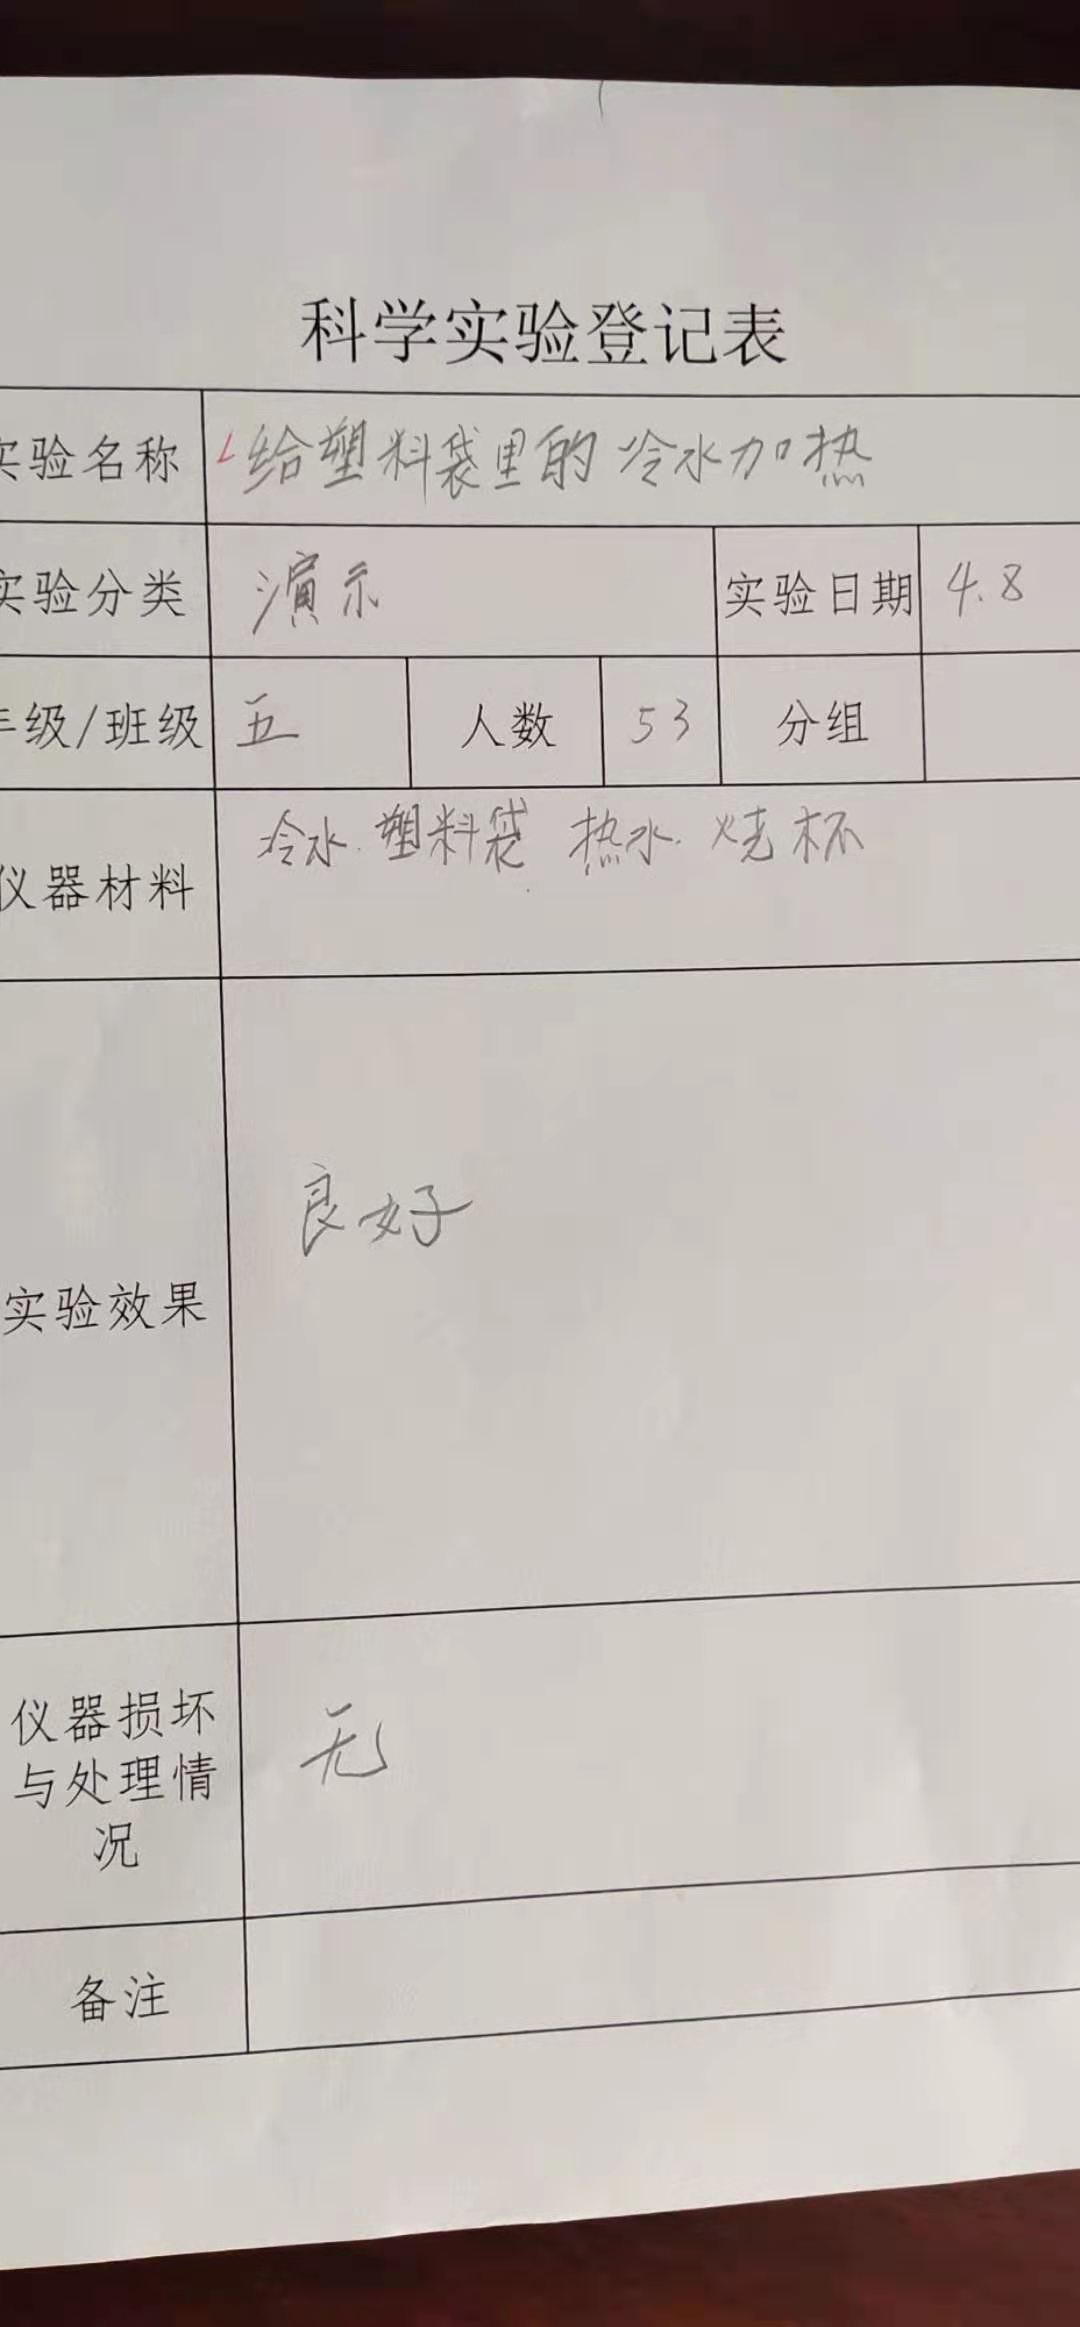 科学实验登记表
实验名称 给塑料袋里的冷水加热
实验分类 演示 实验日期 4.8
年级/班级 五 人数 53 分组
仪器材料 冷水 塑料袋 热水 烧杯
实验效果 良好
仪器损坏
与处理情
况 无
备注